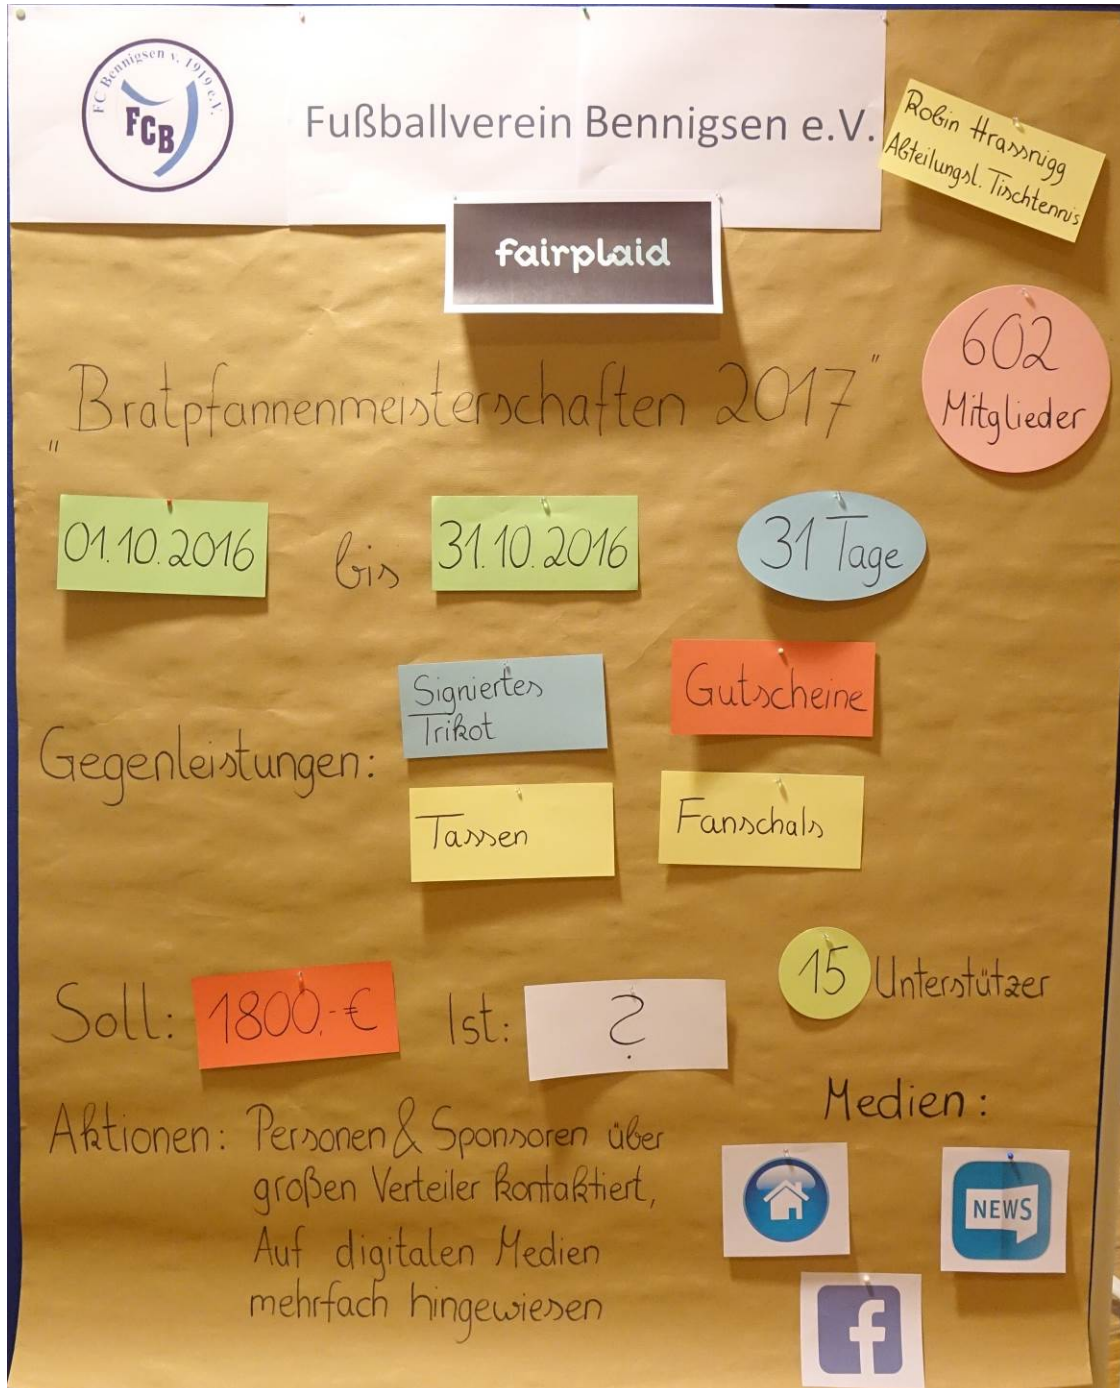 FC Bennigsen v. 1919 e.V.
FCB
Fußballverein Bennigsen e.V.
Robin Hrassnigg
Abteilungsl. Tischtennis
fairplaid
602
Mitglieder
„Bratpfannenmeisterschaften 2017"
01.10.2016 bis 31.10.2016 31 Tage
Gegenleistungen:
Signiertes
Trikot
Gutscheine
Tassen
Fanschals
15 Unterstützer
Soll: 1800.-€ Ist: ?
Aktionen: Personen & Sponsoren über
großen Verteiler kontaktiert,
Auf digitalen Medien
mehrfach hingewiesen
Medien:
NEWS
f